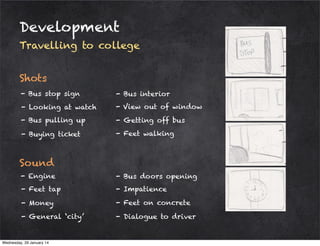 Development
Travelling to college
Shots
- Bus stop sign
- Looking at watch
- Bus pulling up
- Buying ticket
- Bus interior
- View out of window
- Getting off bus
- Feet walking
Sound
- Engine
- Feet tap
- Money
- General ‘city’
- Bus doors opening
- Impatience
- Feet on concrete
- Dialogue to driver
BUS
STOP
Wednesday, 29 January 14